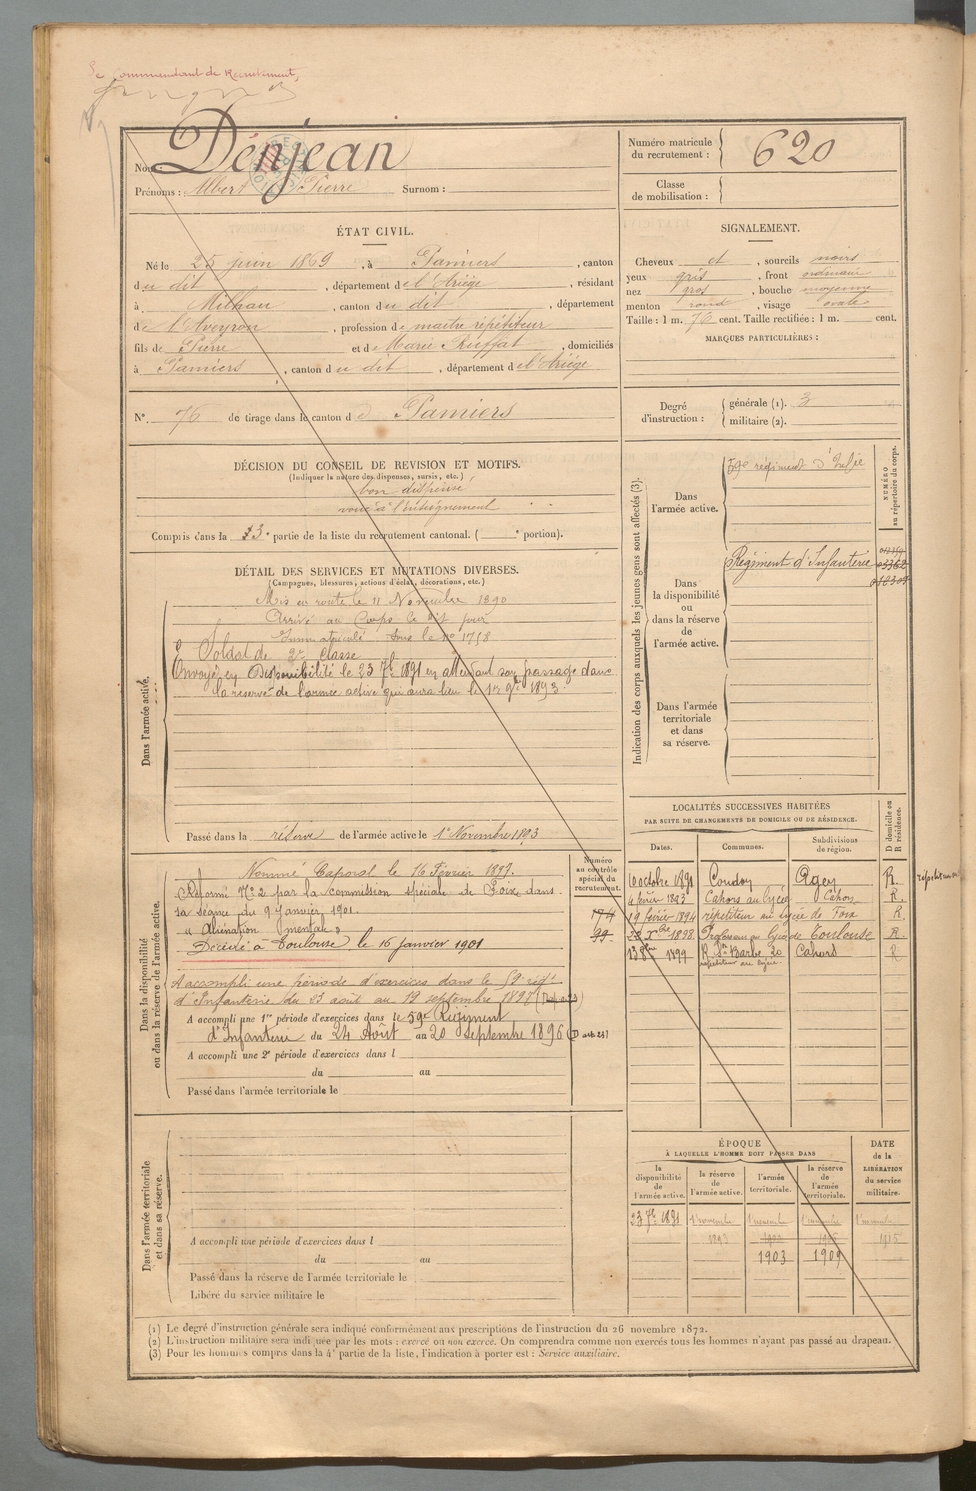 Le Commandant de Recrutement,
Nom: Dénjean
Prénoms : Albert Pierre Surnom :
Numéro matricule du recrutement : 620
Classe de mobilisation :
ÉTAT CIVIL.
Né le 25 juin 1869, à Pamiers, canton
du dit, département de l'Ariége, résidant
à Milhau, canton du dit, département
de l'Aveyron, profession de maitre répétiteur
fils de Pierre et de Marie Ruffat, domiciliés
à Pamiers, canton du dit, département de l'Ariége
N°. 76 de tirage dans le canton de Pamiers
SIGNALEMENT.
Cheveux et, sourcils noirs
yeux gris, front ordinaire
nez gros, bouche moyenne
menton rond, visage ovale
Taille : 1 m. 76 cent. Taille rectifiée : 1 m. cent.
MARQUES PARTICULIÈRES :
Degré d'instruction : générale (1). 3
militaire (2).
DÉCISION DU CONSEIL DE REVISION ET MOTIFS.
(Indiquer la nature des dispenses, sursis, etc.)
bon dispensé
voué à l'enseignement
Compris dans la 3e partie de la liste du recrutement cantonal. ( portion).
DÉTAIL DES SERVICES ET MUTATIONS DIVERSES.
(Campagnes, blessures, actions d'éclat, décorations, etc.)
Dans l'armée active.
Mis en route le 11 Novembre 1890
Arrivé au Corps le dit jour
Immatriculé sous le no 1758
Soldat de 2e classe
Envoyé en Disponibilité le 23 7bre 1891 en attendant son passage dans
la réserve de l'armée active qui aura lieu le 1er 9bre 1893
Passé dans la réserve de l'armée active le 1er Novembre 1893
Indication des corps auxquels les jeunes gens sont affectés (3).
NUMÉRO au répertoire du corps.
Dans l'armée active.
59e régiment d'Infie
Dans la disponibilité ou dans la réserve de l'armée active.
Régiment d'Infanterie
Dans l'armée territoriale et dans sa réserve.
Dans la disponibilité ou dans la réserve de l'armée active.
Numéro au contrôle spécial du recrutement.
Nommé Caporal le 16 Février 1897.
Réformé No 2 par la commission spéciale de Foix, dans
sa séance du 9 Janvier 1901.
"Aliénation mentale"
Décédé à Toulouse le 16 janvier 1901
174
99
A accompli une période d'exercices dans le 59e régt
d'Infanterie du 23 août au 19 septembre 1897
A accompli une 1re période d'exercices dans le 59e Régiment
d'Infanterie du 24 Août au 20 Septembre 1896
A accompli une 2e période d'exercices dans l
du au
Passé dans l'armée territoriale le
LOCALITÉS SUCCESSIVES HABITÉES
PAR SUITE DE CHANGEMENTS DE DOMICILE OU DE RÉSIDENCE.
Dates. Communes. Subdivisions de région. D domicile ou R résidence.
10 octobre 1891 Condom Agen R.
4 février 1893 Cahors au lycée Cahors R.
19 février 1894 répétiteur au Lycée de Foix R.
1898 Professeur au lycée de Toulouse R.
13 8bre 1899 R Ste Barbe 20 Cahors R
répétiteur au lycée.
Dans l'armée territoriale et dans sa réserve.
A accompli une période d'exercices dans l
du au
Passé dans la réserve de l'armée territoriale le
Libéré du service militaire le
ÉPOQUE
À LAQUELLE L'HOMME DOIT PASSER DANS
la disponibilité de l'armée active.
la réserve de l'armée active.
l'armée territoriale.
la réserve de l'armée territoriale.
DATE de la LIBÉRATION du service militaire.
23 7bre 1891 1er novembre 1er novembre 1er novembre 1er novembre
1893 1915
1903 1909
(1) Le degré d'instruction générale sera indiqué conformément aux prescriptions de l'instruction du 26 novembre 1872.
(2) L'instruction militaire sera indiquée par les mots : exercé ou non exercé. On comprendra comme non exercés tous les hommes n'ayant pas passé au drapeau.
(3) Pour les hommes compris dans la 4e partie de la liste, l'indication à porter est : Service auxiliaire.